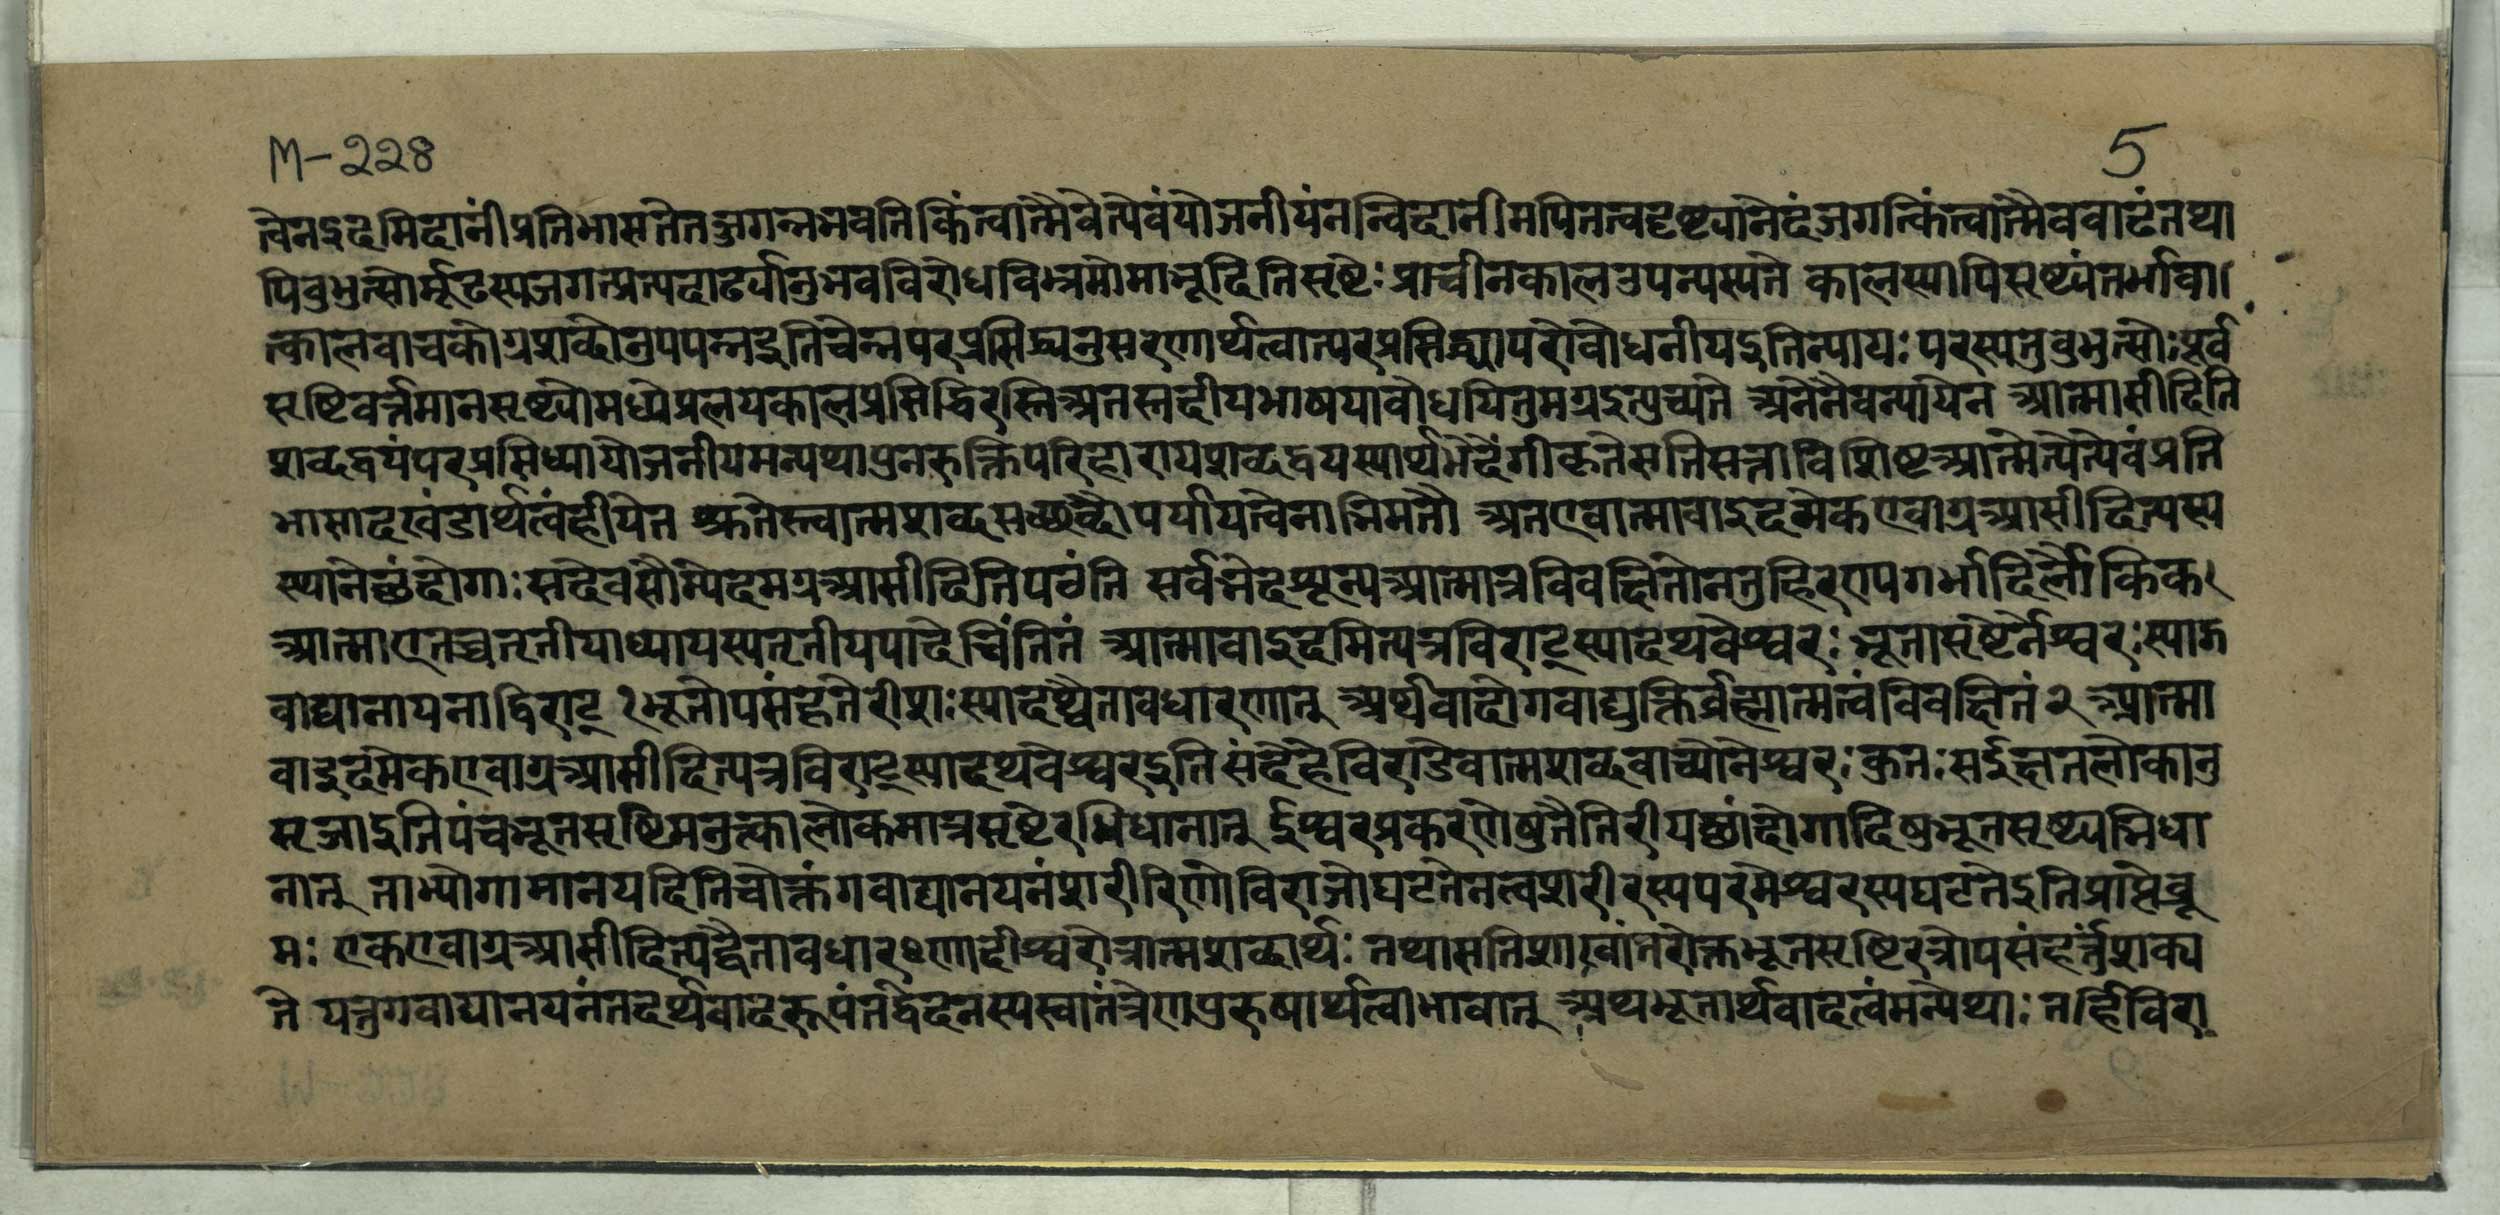 M-228
5
त्वेनइदमिदानींप्रतिभासतेतज्जगन्नभवतिकिंत्वात्मैवेत्येवंयोजनीयंनन्विदानीमपितत्वदृष्ट्यानेदंजगत्किंत्वात्मैवबाढंतथा
पिबुभुत्सोर्मूढस्यजगत्प्रत्यदार्ढ्यानुभवविरोधविभ्रमोमाभूदितिसृष्टेः प्राचीनकालउपन्यस्यते कालस्यापिसृष्ट्यंतर्भावा।
त्कालवाचकोग्रशब्दोनुपपन्नइतिचेन्नपरप्रसिद्ध्यनुसरणार्थत्वात्परप्रसिद्ध्यापरोबोधनीयइतिन्यायः परस्यतुबुभुत्सोः पूर्व
सृष्टिवर्त्तमानसृष्ट्योमध्येप्रलयकालप्रसिद्धिरस्तिअतस्तदीयभाषयाबोधयितुमग्रइत्युच्यते अनेनैवन्यायेन आत्मासीदिति
शब्दद्वयंपरप्रसिध्यायोजनीयमन्यथापुनरुक्तिपरिहारायशब्दद्वयस्यार्थभेदेंगीकृतेसतिसत्ताविशिष्टआत्मेत्येत्येवंप्रति
भासादखंडार्थत्वंहीयेत श्रुतेस्त्वात्मशब्दसच्छब्दौपर्यायत्वेनाभिमतौ अतएवात्मावाइदमेकएवाग्रआसीदित्यस्य
स्थानेछंदोगाः सदेवसौम्येदमग्रआसीदितिपठंति सर्वभेदशून्यआत्मात्रविवक्षितोनतुहिरण्यगर्भादिर्लौकिक।
आत्माएतच्चतृतीयाध्यायस्यतृतीयपादेचिंतितं आत्मावाइदमित्यत्रविराट्स्यादथवेश्वरः भूतासृष्टेर्नेश्वरः स्याग
वाद्यानायनाद्विराट् १ भूतोपसंहृतेरीशः स्यादद्वैतावधारणात् अर्थवादोगवाद्युक्तिर्ब्रह्मात्मत्वंविवक्षितं २ आत्मा
वाइदमेकएवाग्रआसीदित्यत्रविराट्स्यादथवेश्वरइति संदेहेविराडेवात्मशब्दवाच्योनेश्वरः कुतः सईक्षतलोकानु
सृजाइतिपंचभूतसृष्टिमनुत्कालोकमात्रसृष्टेरभिधानात् ईश्वरप्रकरणेषुतैत्तिरीयछांदोगादिषुभूतसृष्ट्यभिधा
नात् ताभ्योगामानयदितिचोक्तंगवाद्यानयनंशरीरिणोविराजोघटतेनत्वशरीरस्यपरमेश्वरस्यघटतेइतिप्राप्तेब्रू
मः एकएवाग्रआसीदित्यद्वैतावधारणादीश्वरोत्रात्मशब्दार्थः तथासतिशाखांतरोक्तभूतसृष्टिरत्रोपसंहर्त्तुंशक्य
ते यत्तुगवाद्यानयनंतदर्थवादरूपंतद्वेदनस्यस्वातंत्रेणपुरुषार्थत्वाभावात् अथभूतार्थवादत्वंमन्येथाः तर्हिविरा